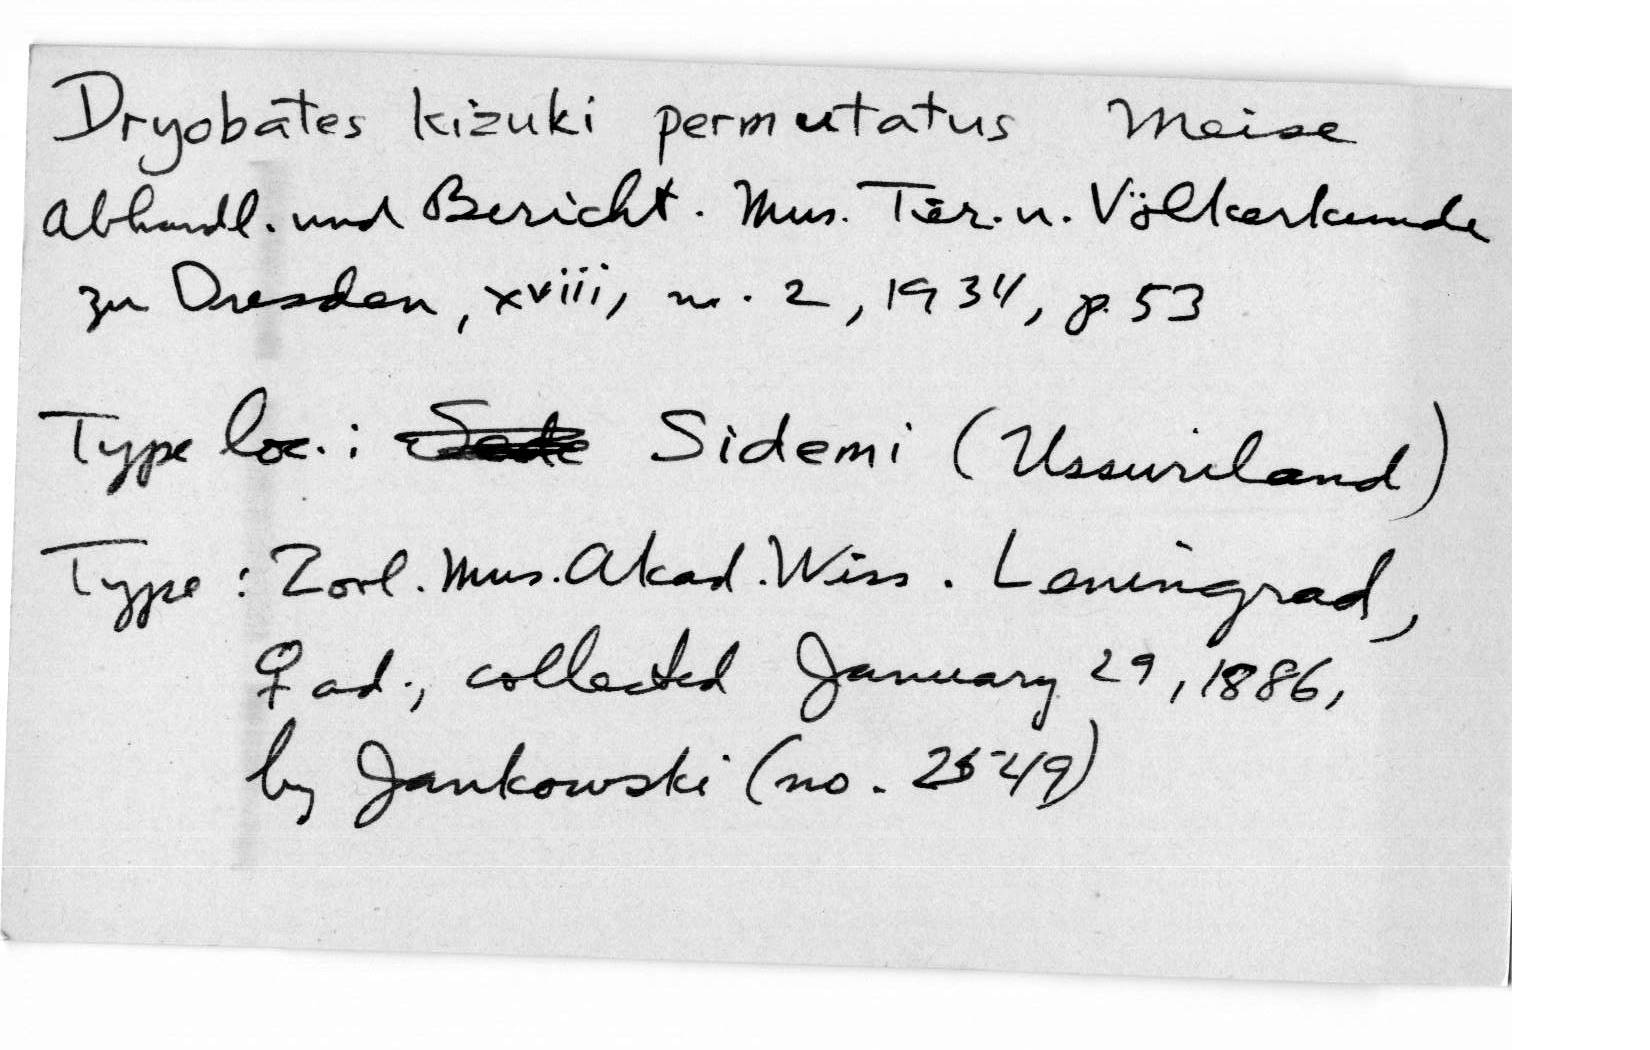 Dryobates kizuki permutatus Meise
Abhandl. und Bericht. Mus. Tier. u. Völkerkunde
zu Dresden, xviii, no. 2, 1934, p. 53
Type loc.: Sidemi (Ussuriland)
Type: Zool. Mus. Akad. Wiss. Leningrad,
♀ ad., collected January 29, 1886,
by Jankowski (no. 2549)